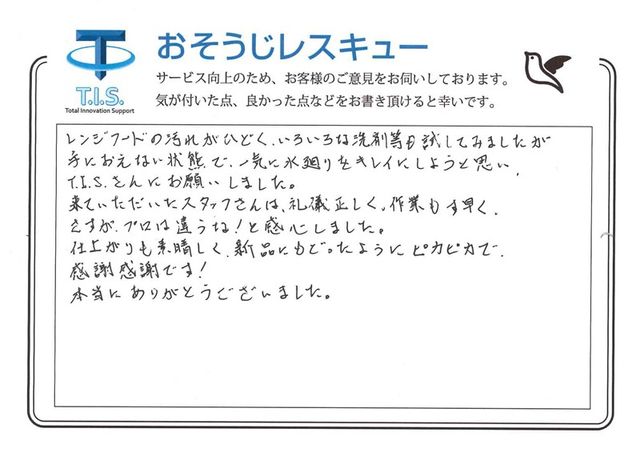 T.I.S.
Total Innovation Support
おそうじレスキュー
サービス向上のため、お客様のご意見をお伺いしております。
気が付いた点、良かった点などをお書き頂けると幸いです。
レンジフードの汚れがひどく、いろいろな洗剤等も試してみましたが
手におえない状態で、一気に水廻りをキレイにしようと思い、
T.I.S.さんにお願いしました。
来ていただいたスタッフさんは、礼儀正しく、作業もす早く、
さすが、プロは違うな!と感心しました。
仕上がりも素晴しく、新品にもどったようにピカピカで、
感謝感謝です!
本当にありがとうございました。